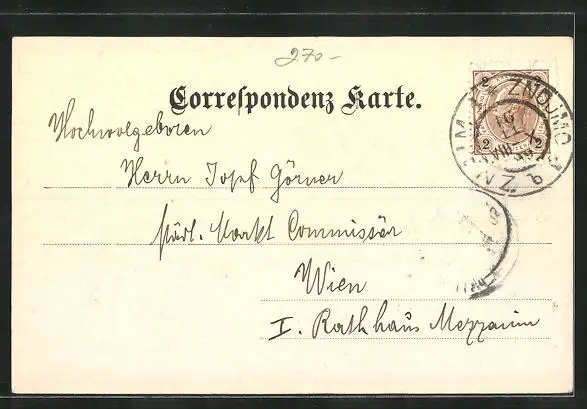 270-
Correspondenz Karte.
2
2 2
ZNAIM ZNOJMO
Hochwolgeboren
Herrn Josef Görner
städt. Markt Commissär
Wien
I. Rathhaus Mezzanim